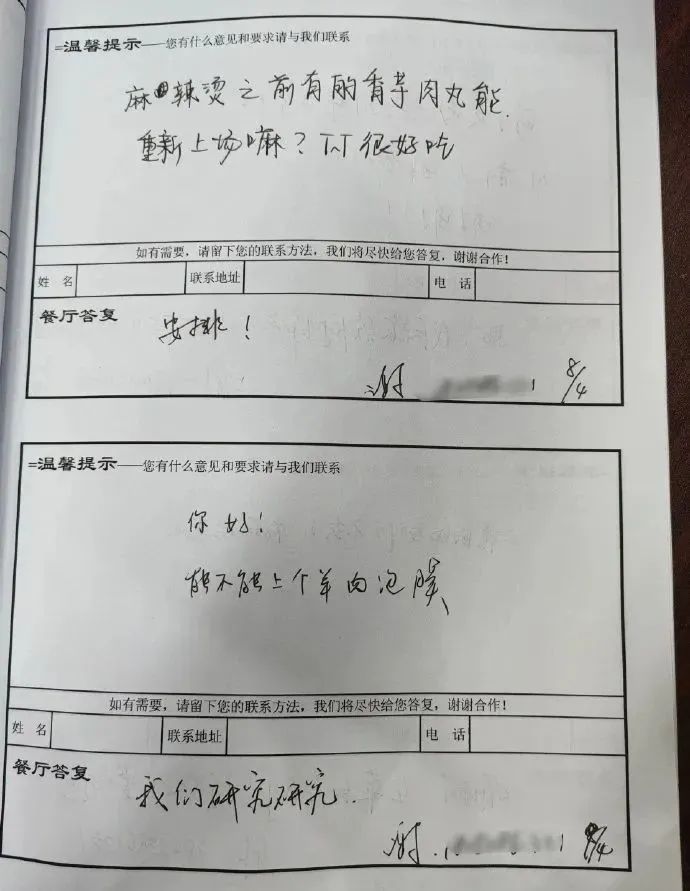 =温馨提示——您有什么意见和要求请与我们联系
麻辣烫之前有的香芋肉丸能
重新上场嘛？T~T很好吃
如有需要，请留下您的联系方法，我们将尽快给您答复，谢谢合作！
姓 名 联系地址 电 话
餐厅答复
安排！
谢
8/4
=温馨提示——您有什么意见和要求请与我们联系
你好！
能不能上个羊肉泡膜
如有需要，请留下您的联系方法，我们将尽快给您答复，谢谢合作！
姓 名 联系地址 电 话
餐厅答复
我们研究研究.
谢
8/4